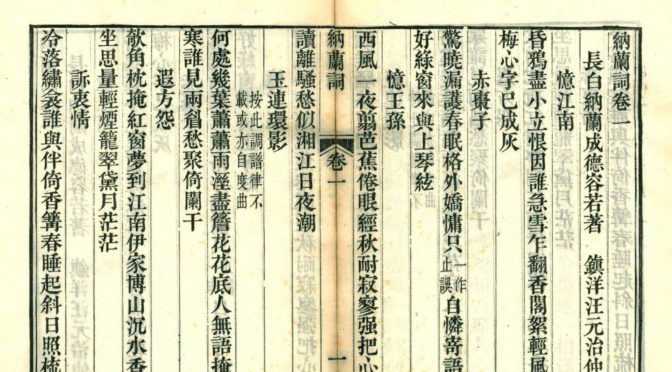 納蘭詞卷一
長白納蘭成德容若著　鎮洋汪元治仲
憶江南
昏鴉盡小立恨因誰急雪乍翻香閣絮輕風
梅心字已成灰
赤棗子
驚曉漏護春眠格外嬌慵只一作止誤自憐寄語
好綠窗來與上琴絃
憶王孫
西風一夜翦芭蕉倦眼經秋耐寂寥强把心
納蘭詞　卷一　一
讀離騷愁似湘江日夜潮
玉連環影　按此調譜律不載或亦自度曲
何處幾葉蕭蕭雨溼盡簷花花底人無語掩
寒誰見兩眉愁聚倚闌干
遐方怨
欹角枕掩紅窗夢到江南伊家博山沉水香
坐思量輕煙籠翠黛月茫茫
訴衷情
冷落繡衾誰與伴倚香篝春睡起斜日照梳